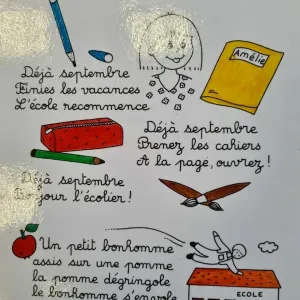 Amélie
Déjà septembre
Finies les vacances
L'école recommence
Déjà septembre
Prenez les cahiers
A la page, ouvrez !
Déjà septembre
Bonjour l'écolier !
Un petit bonhomme
assis sur une pomme
la pomme dégringole
le bonhomme s'envole
ECOLE